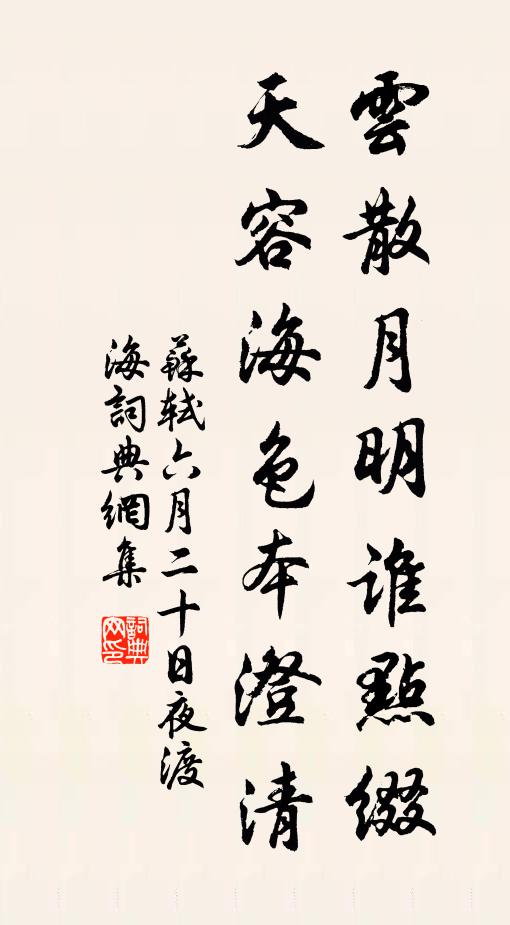 雲散月明誰點綴
天容海色本澄清
蘇軾六月二十日夜渡
海詞典網集
詞典
网印